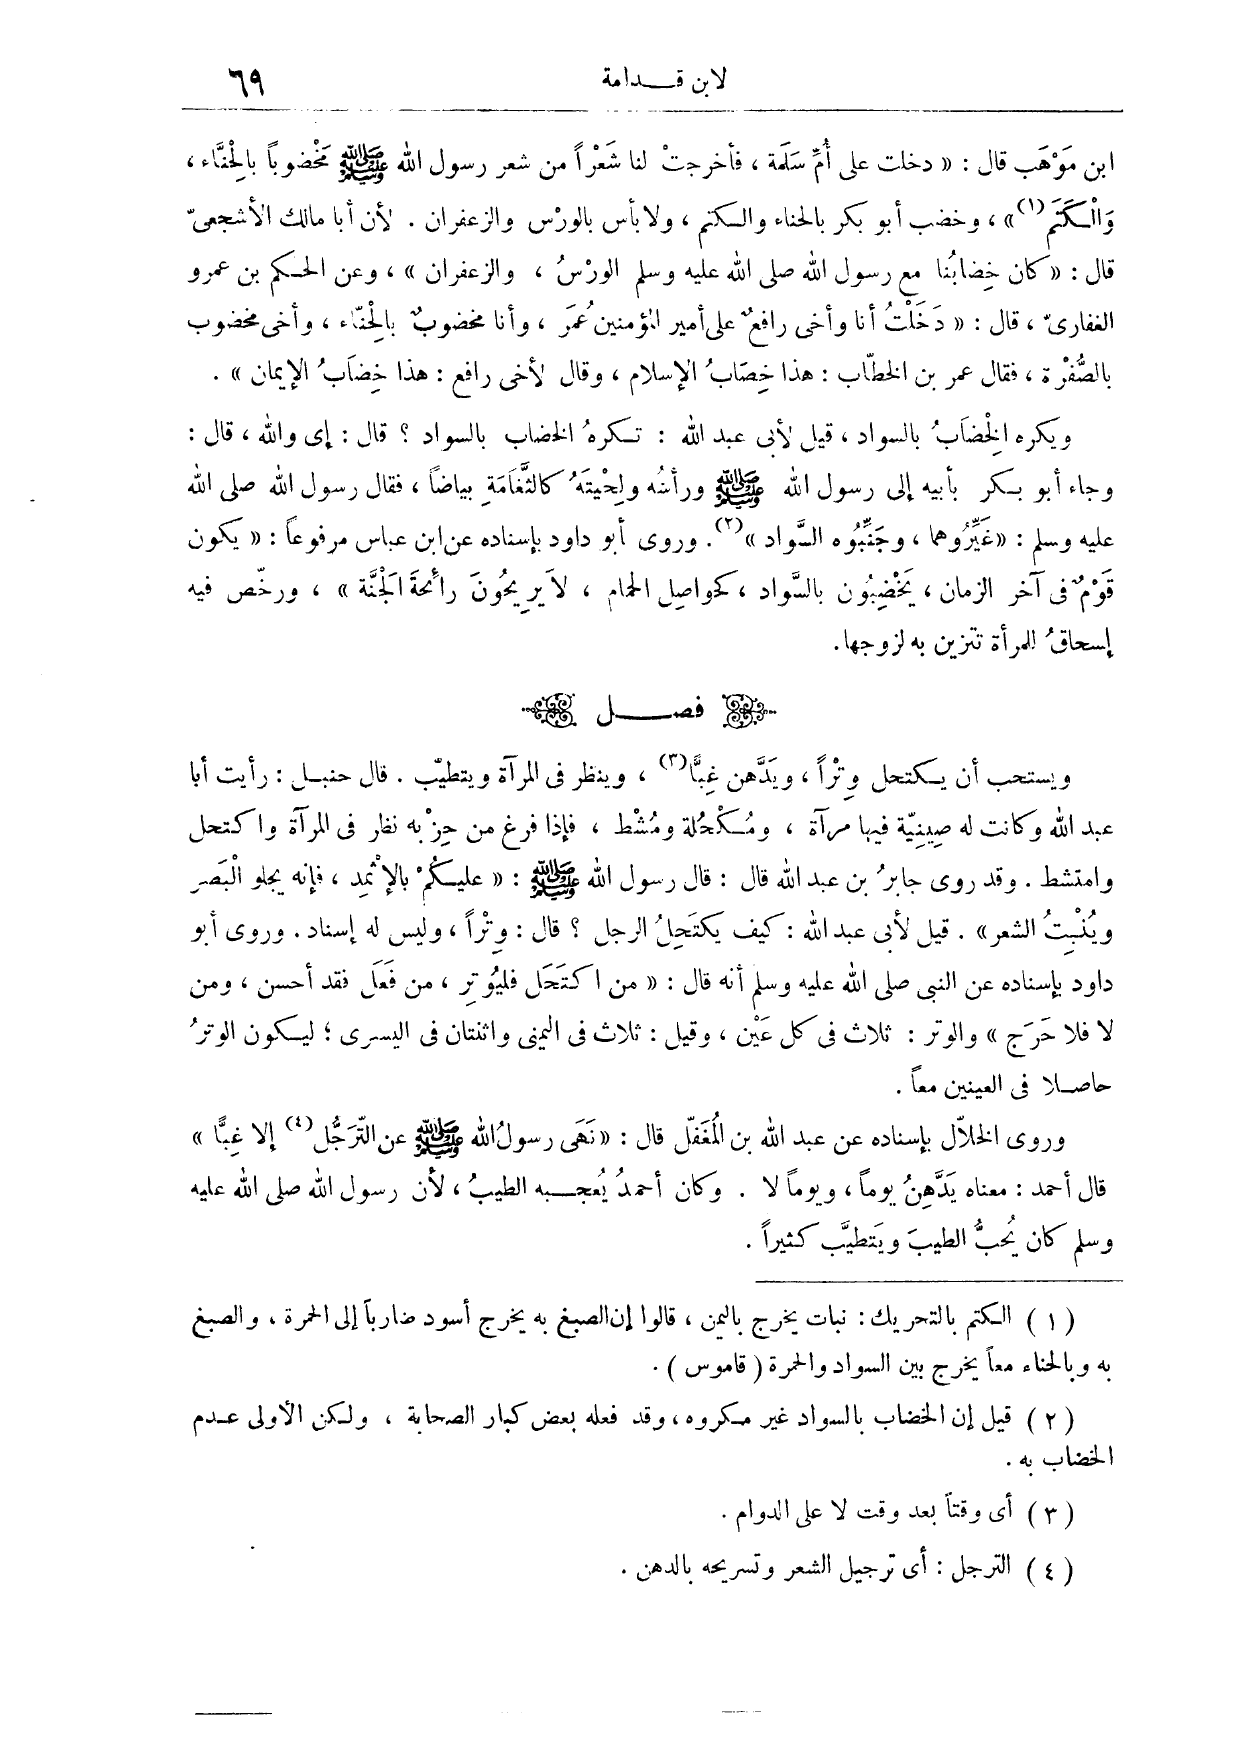 لابن قدامة ٦٩
ابن مَوْهَب قال : « دخلت على أُمِّ سَلَمة ، فأخرجتْ لنا شَعْراً من شعر رسول الله ﷺ مَخْضوباً بالِحْنَّاء ،
وَالْكَتَمِ (١) » ، وخضب أبو بكر بالحناء والكتم ، ولا بأس بالورْس والزعفران . لأن أبا مالك الأشجعىّ
قال : « كان خِضابُنا مع رسول الله صلى الله عليه وسلم الورْسُ ، والزعفران » ، وعن الحكم بن عمرو
الغفارىّ ، قال : « دَخَلْتُ أنا وأخى رافعٌ على أمير المؤمنين عُمَر ، وأنا مخضوبٌ بالِحْنّاء ، وأخى مخضوب
بالصُّفْرة ، فقال عمر بن الخطّاب : هذا خِصَابُ الإسلام ، وقال لأخى رافع : هذا خِضاَبُ الإيمان » .
ويكره الِخْضاَبُ بالسواد ، قيل لأبى عبد الله : تكرهُ الخضاب بالسواد ؟ قال : إى والله ، قال :
وجاء أبو بكر بأبيه إلى رسول الله ﷺ ورأسُه ولِحْيتَهُ كالثَّغَامَةِ بياضاً ، فقال رسول الله صلى الله
عليه وسلم : «غَيِّرُوهما ، وجَنِّبُوه السَّواد » (٢) . وروى أبو داود بإسناده عن ابن عباس مرفوعاً : « يكون
قَوْمٌ فى آخر الزمان ، يَخْضِبُون بالسَّواد ، كحواصِل الحمام ، لاَ يرِيحُونَ رائحةَ الْجَنَّة » ، ورخّص فيه
إسحاقُ للمرأة تتزين به لزوجها .
فصل
ويستحب أن يكتحل وِتْراً ، ويَدَّهن غِبًّا (٣) ، وينظر فى المرآة ويتطيّب . قال حنبل : رأيت أبا
عبد الله وكانت له صِينِيّة فيها مرآة ، ومُكْحُلة ومُشْط ، فإذا فرغ من حِزْبه نظر فى المرآة واكتحل
وامتشط . وقد روى جابرُ بن عبد الله قال : قال رسول الله ﷺ : « عليكُمْ بالإثْمِد ، فإنه يجلو الْبَصَر
ويُنْبِتُ الشعر » . قيل لأبى عبد الله : كيف يكتَحِلُ الرجل ؟ قال : وِتْراً ، وليس له إسناد . وروى أبو
داود بإسناده عن النبى صلى الله عليه وسلم أنه قال : « من اكتَحَل فليُوتِر ، من فَعَل فقد أحسن ، ومن
لا فلا حَرَج » والوتر : ثلاث فى كل عَيْن ، وقيل : ثلاث فى اليمنى واثنتان فى اليسرى ؛ ليكون الوترُ
حاصلا فى العينين معاً .
وروى الخلاّل بإسناده عن عبد الله بن الْمُغَفّل قال : « نَهَى رسولُ الله ﷺ عن التّرَجُّل (٤) إلا غِبًّا »
قال أحمد : معناه يَدَّهِنُ يوماً ، ويوماً لا . وكان أحمدُ يُعجبه الطيبُ ، لأن رسول الله صلى الله عليه
وسلم كان يُحبُّ الطيبَ ويَتطيَّب كثيراً .
( ١ ) الكتم بالتحريك : نبات يخرج باليمن ، قالوا إن الصبغ به يخرج أسود ضارباً إلى الحمرة ، والصبغ
به وبالحناء معاً يخرج بين السواد والحمرة ( قاموس ) .
( ٢ ) قيل إن الخضاب بالسواد غير مكروه ، وقد فعله بعض كبار الصحابة ، ولكن الأولى عدم
الخضاب به .
( ٣ ) أى وقتاً بعد وقت لا على الدوام .
( ٤ ) الترجل : أى ترجيل الشعر وتسريحه بالدهن .